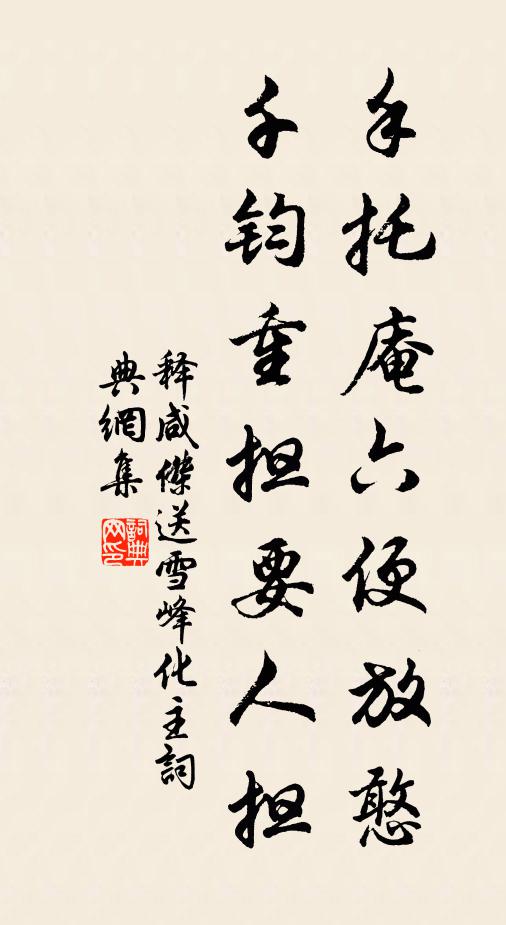 手托庵六便放憨
千钧重担要人担
释咸傑送雪峰化主詞
典網集
詞典
网印